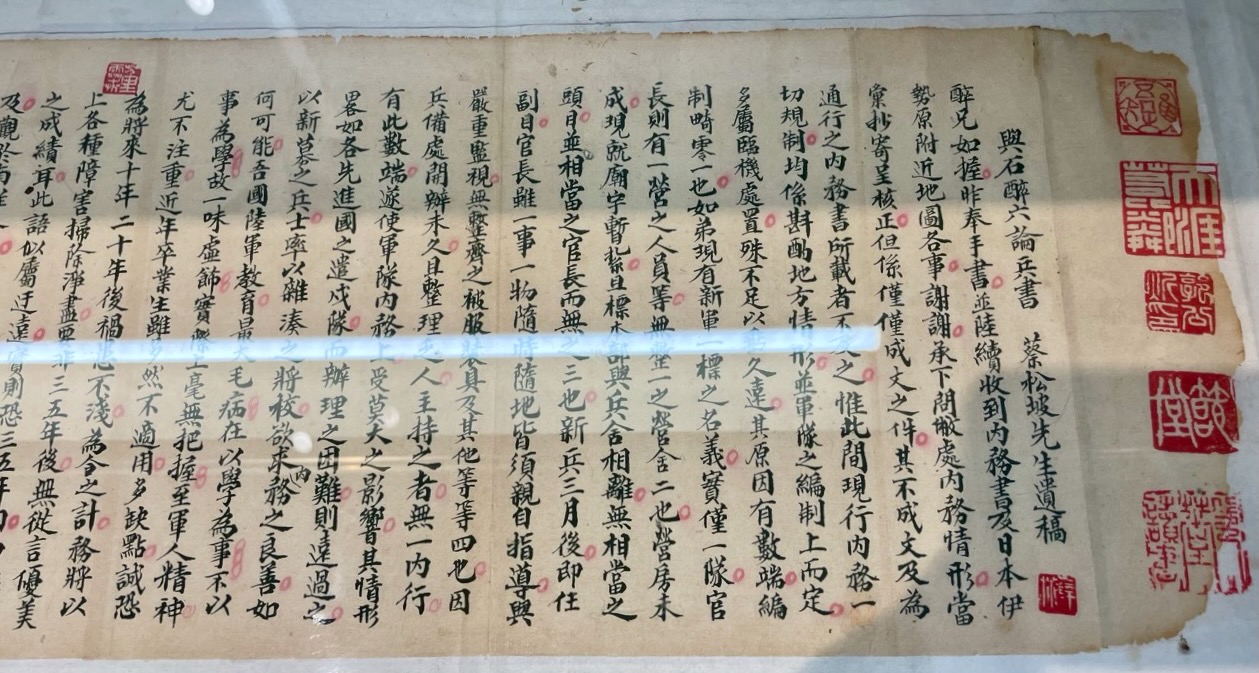 與石醉六論兵書 蔡松坡先生遺稿
醉兄如握昨奉手書並陸續收到內務書及日本伊
勢原附近地圖各事謝謝承下問敝處內務情形當
彙抄寄呈核正但係僅僅成文之件其不成文及為
通行之內務書所載者不及之惟此間現行內務一
切規制均係斟酌地方情形並軍隊之編制上而定
多屬臨機處置殊不足以久遠其原因有數端編
制畸零一也如弟現有新軍一標之名義實僅一隊官
長則有一營之人員等無整一之營舍二也營房未
成現就廟宇暫紮且標本部與兵舍相離無相當之
頭目並相當之官長而無之三也新兵三月後即任
副目官長雖一事一物隨時隨地皆須親自指導與
嚴重監視無整齊之被服裝具及其他等等四也因
兵備處開辦未久且整理乏人主持之者無一內行
有此數端遂使軍隊內務上受莫大之影響其情形
畧如各先進國之遣戍隊而辦理之困難則遠過之
以新募之兵士率以雜湊之將校欲求內務之良善如
何可能吾國陸軍教育最大毛病在以學為事不以
事為學故一味虛飾實際上毫無把握至軍人精神
尤不注重近年卒業生雖多然不適用多缺點誠恐
為將來十年二十年後禍患不淺為今之計務將以
上各種障害掃除淨盡要非三五年後無從言優美
之成績耳此語似屬迂遠實則恐三五年